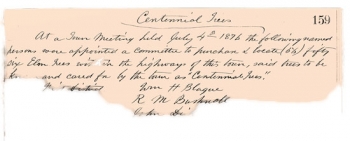 Centennial Trees 159
At a Town Meeting held July 4th 1876 the following named
persons were appointed a committee to purchase & locate (56) fifty
six Elm Trees in the highways of this town, said trees to be
and cared for by the town as "Centennial Trees."
Wm H Blague
R. M. Bushnell
John